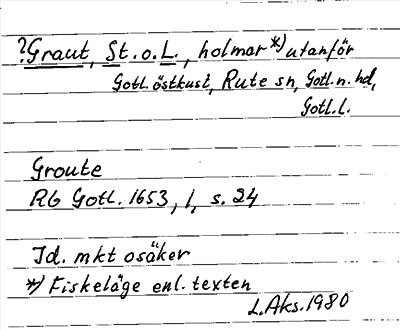 ?Graut, St. o. L., holmar *) utanför
Gotl. östkust, Rute sn, Gotl. n. hd,
Gotl. l.
Groute
RG Gotl. 1653, 1, s. 24
Id. mkt osäker
*) Fiskeläge enl. texten
L. Aks. 1980